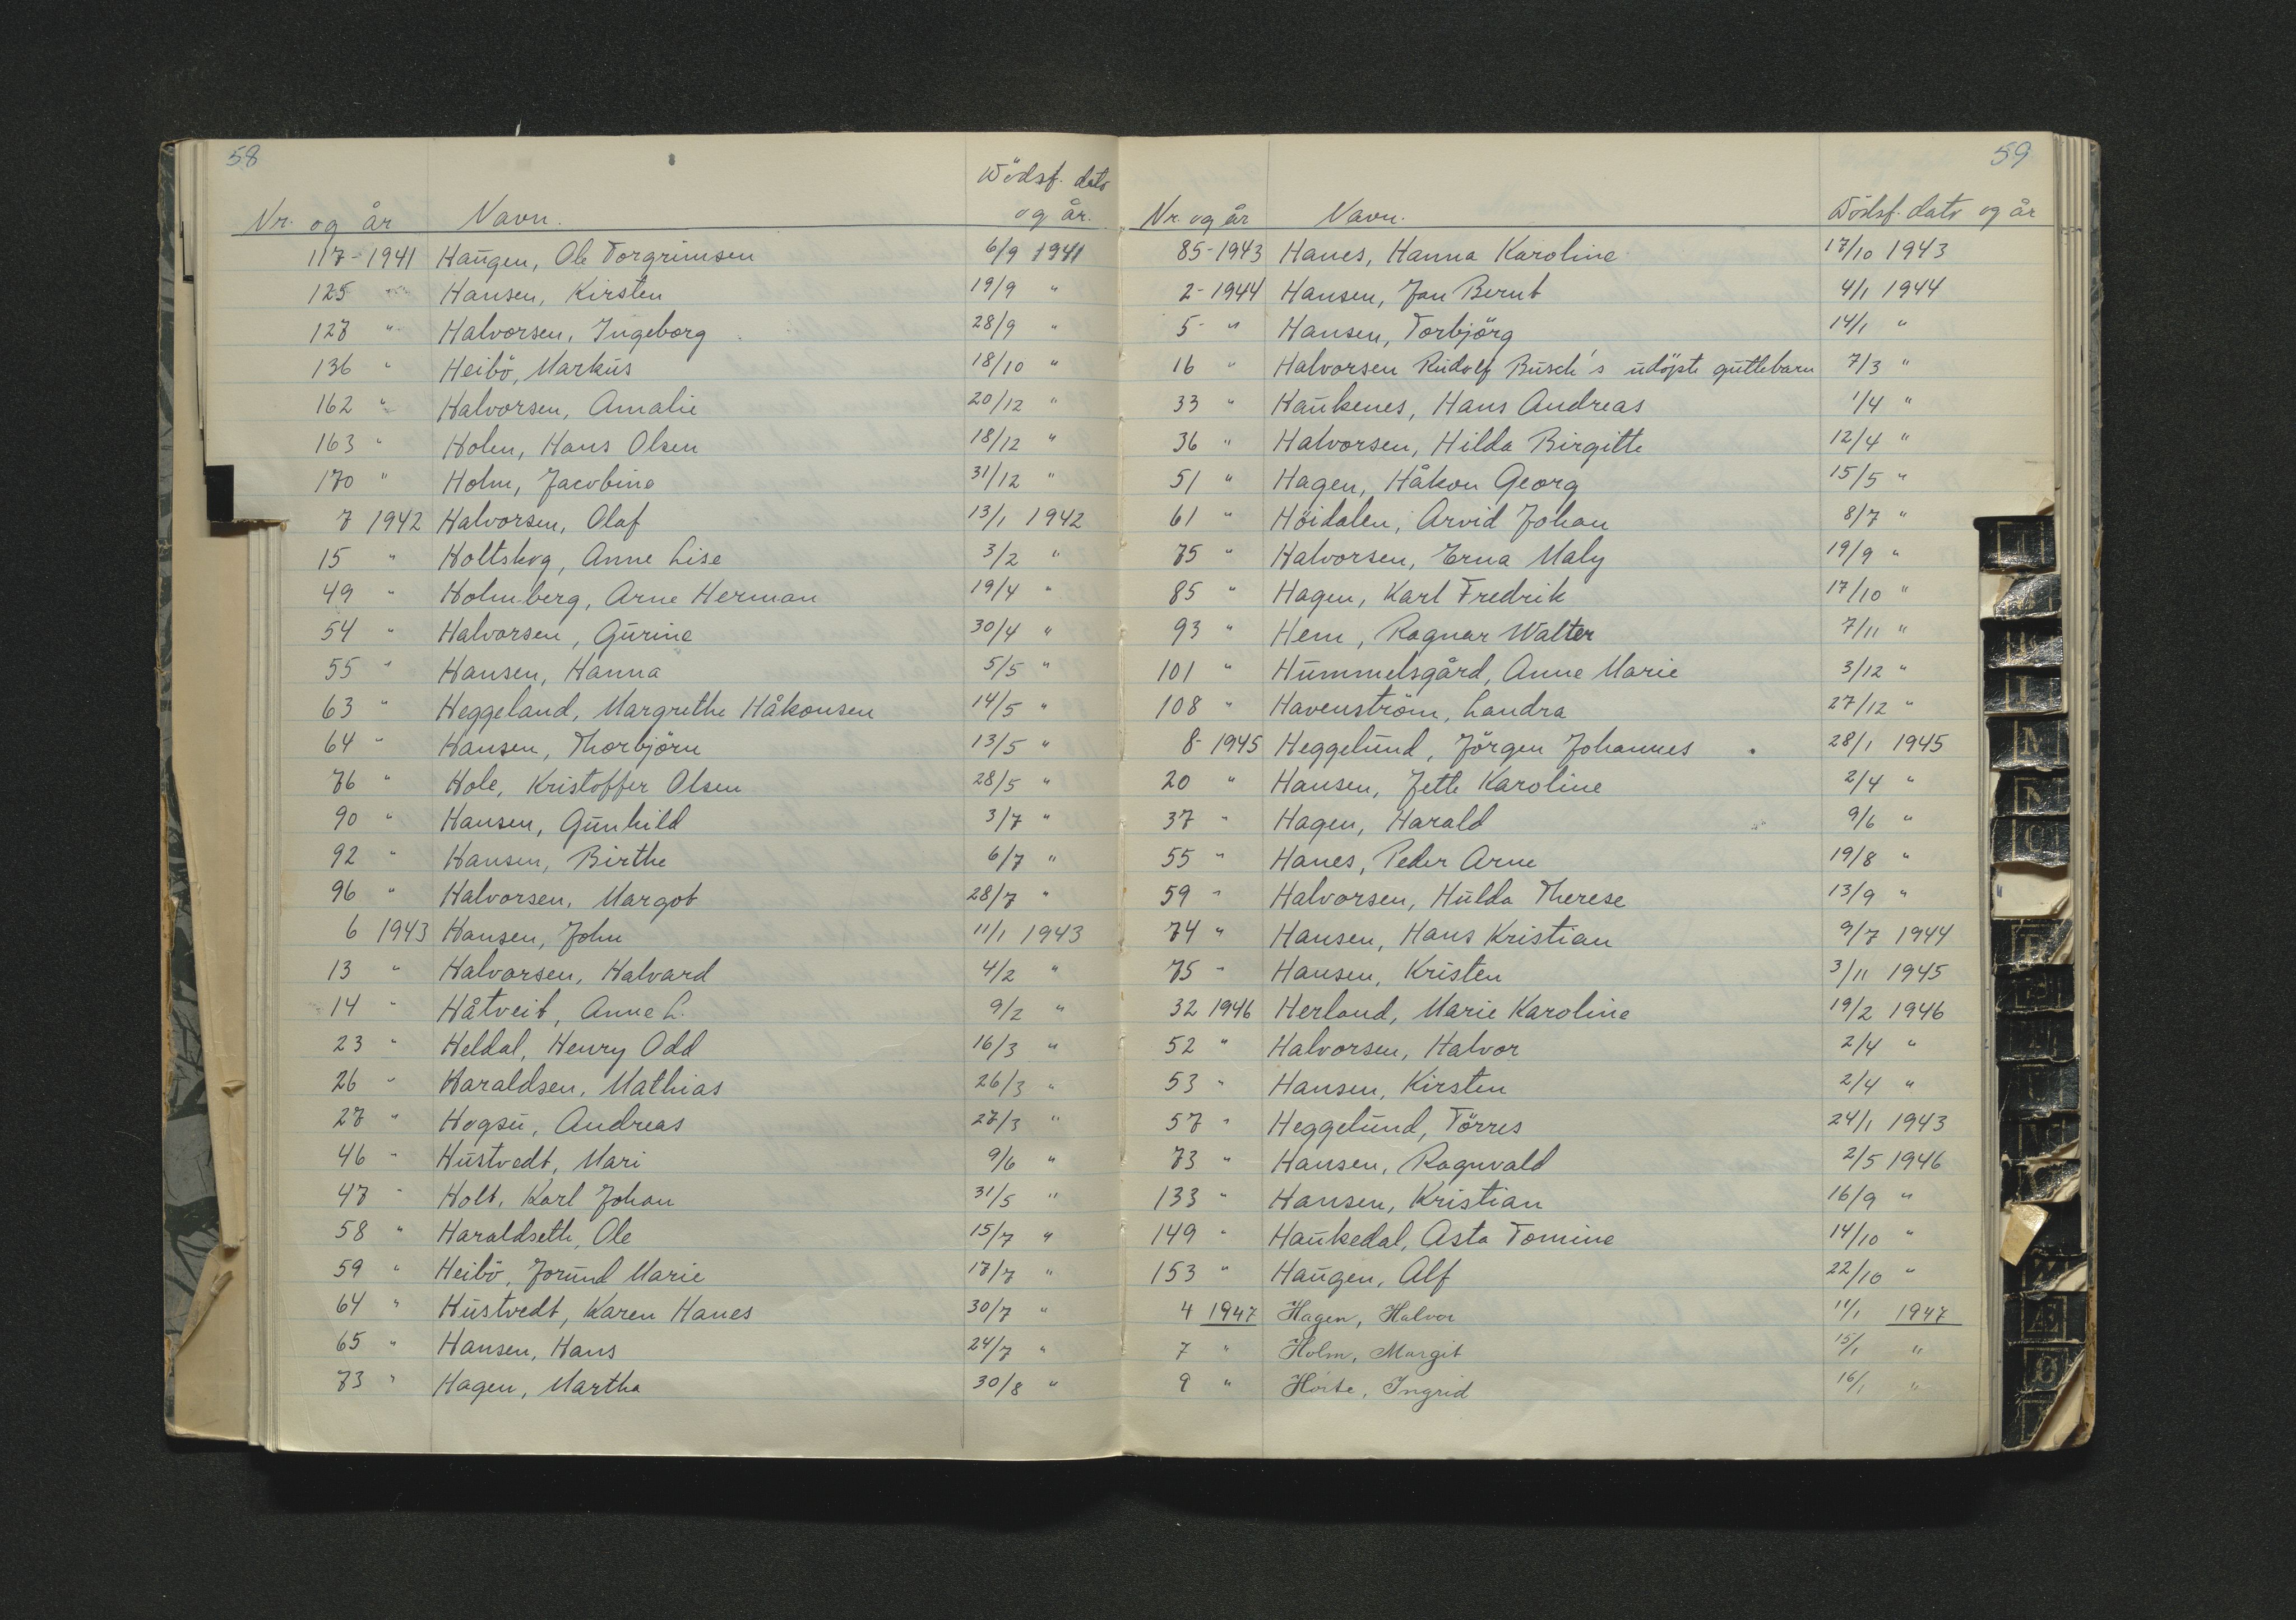 58
Nr. og år Navn. Dödsf. dato og år.
117 - 1941 Haugen, Ole Torgrimsen 6/9 1941
125 " Hansen, Kirsten 19/9 "
127 " Halvorsen, Ingeborg 28/9 "
136 " Heibö, Markus 18/10 "
162 " Halvorsen, Amalie 20/12 "
163 " Holm, Hans Olsen 18/12 "
170 " Holm, Jacobine 31/12 "
7 1942 Halvorsen, Olaf 13/1 1942
15 " Holtskog, Anne Lise 3/2 "
49 " Holmberg, Arne Herman 19/4 "
54 " Halvorsen, Gurine 30/4 "
55 " Hansen, Hanna 5/5 "
63 " Heggeland, Margrethe Håkonsen 14/5 "
64 " Hansen, Thorbjörn 13/5 "
76 " Hole, Kristoffer Olsen 28/5 "
90 " Hansen, Gunhild 3/7 "
92 " Hansen, Birthe 6/7 "
96 " Halvorsen, Margot 28/7 "
6 1943 Hansen, John 11/1 1943
13 " Halvorsen, Halvard 4/2 "
14 " Håtveit, Anne L. 9/2 "
23 " Heldal, Henry Odd 16/3 "
26 " Haraldsen, Mathias 26/3 "
27 " Hogsu, Andreas 27/3 "
46 " Hustvedt, Mari 9/6 "
47 " Holt, Karl Johan 31/5 "
58 " Haraldseth, Ole 15/7 "
59 " Heibö, Jorund Marie 17/7 "
64 " Hustvedt, Karen Hanes 30/7 "
65 " Hansen, Hans 24/7 "
73 " Hagen, Martha 30/8 "
59
Nr. og år Navn. Dödsf. dato og år
85 - 1943 Hanes, Hanna Karoline 17/10 1943
2 - 1944 Hansen, Jan Bernt 4/1 1944
5 - " Hansen, Torbjörg 14/1 "
16 " Halvorsen Rudolf Busch's udöpte guttebarn 7/3 "
33 " Haukenes, Hans Andreas 1/4 "
36 " Halvorsen, Hilda Birgitte 12/4 "
51 " Hagen, Håkon Georg 15/5 "
61 " Höidalen, Arvid Johan 8/7 "
75 " Halvorsen, Erna Maly 19/9 "
85 " Hagen, Karl Fredrik 17/10 "
93 " Hem, Ragnar Walter 7/11 "
101 " Hummelsgård, Anne Marie 3/12 "
108 " Havenström, Landra 27/12 "
8 - 1945 Heggelund, Jörgen Johannes 28/1 1945
20 " Hansen, Jette Karoline 2/4 "
37 " Hagen, Harald 9/6 "
55 " Hanes, Peder Arne 19/8 "
59 " Halvorsen, Hulda Therese 13/9 "
74 " Hansen, Hans Kristian 9/7 1944
75 " Hansen, Kristen 3/11 1945
32 1946 Herland, Marie Karoline 19/2 1946
52 " Halvorsen, Halvor 2/4 "
53 " Hansen, Kirsten 2/4 "
57 " Heggelund, Törres 24/1 1943
73 " Hansen, Ragnvald 2/5 1946
133 " Hansen, Kristian 16/9 "
149 " Haukedal, Asta Tomine 14/10 "
153 " Haugen, Alf 22/10 "
4 1947 Hagen, Halvor 11/1 1947
7 " Holm, Margit 15/1 "
9 " Hörte, Ingrid 16/1 "
M
N
Æ
Ø